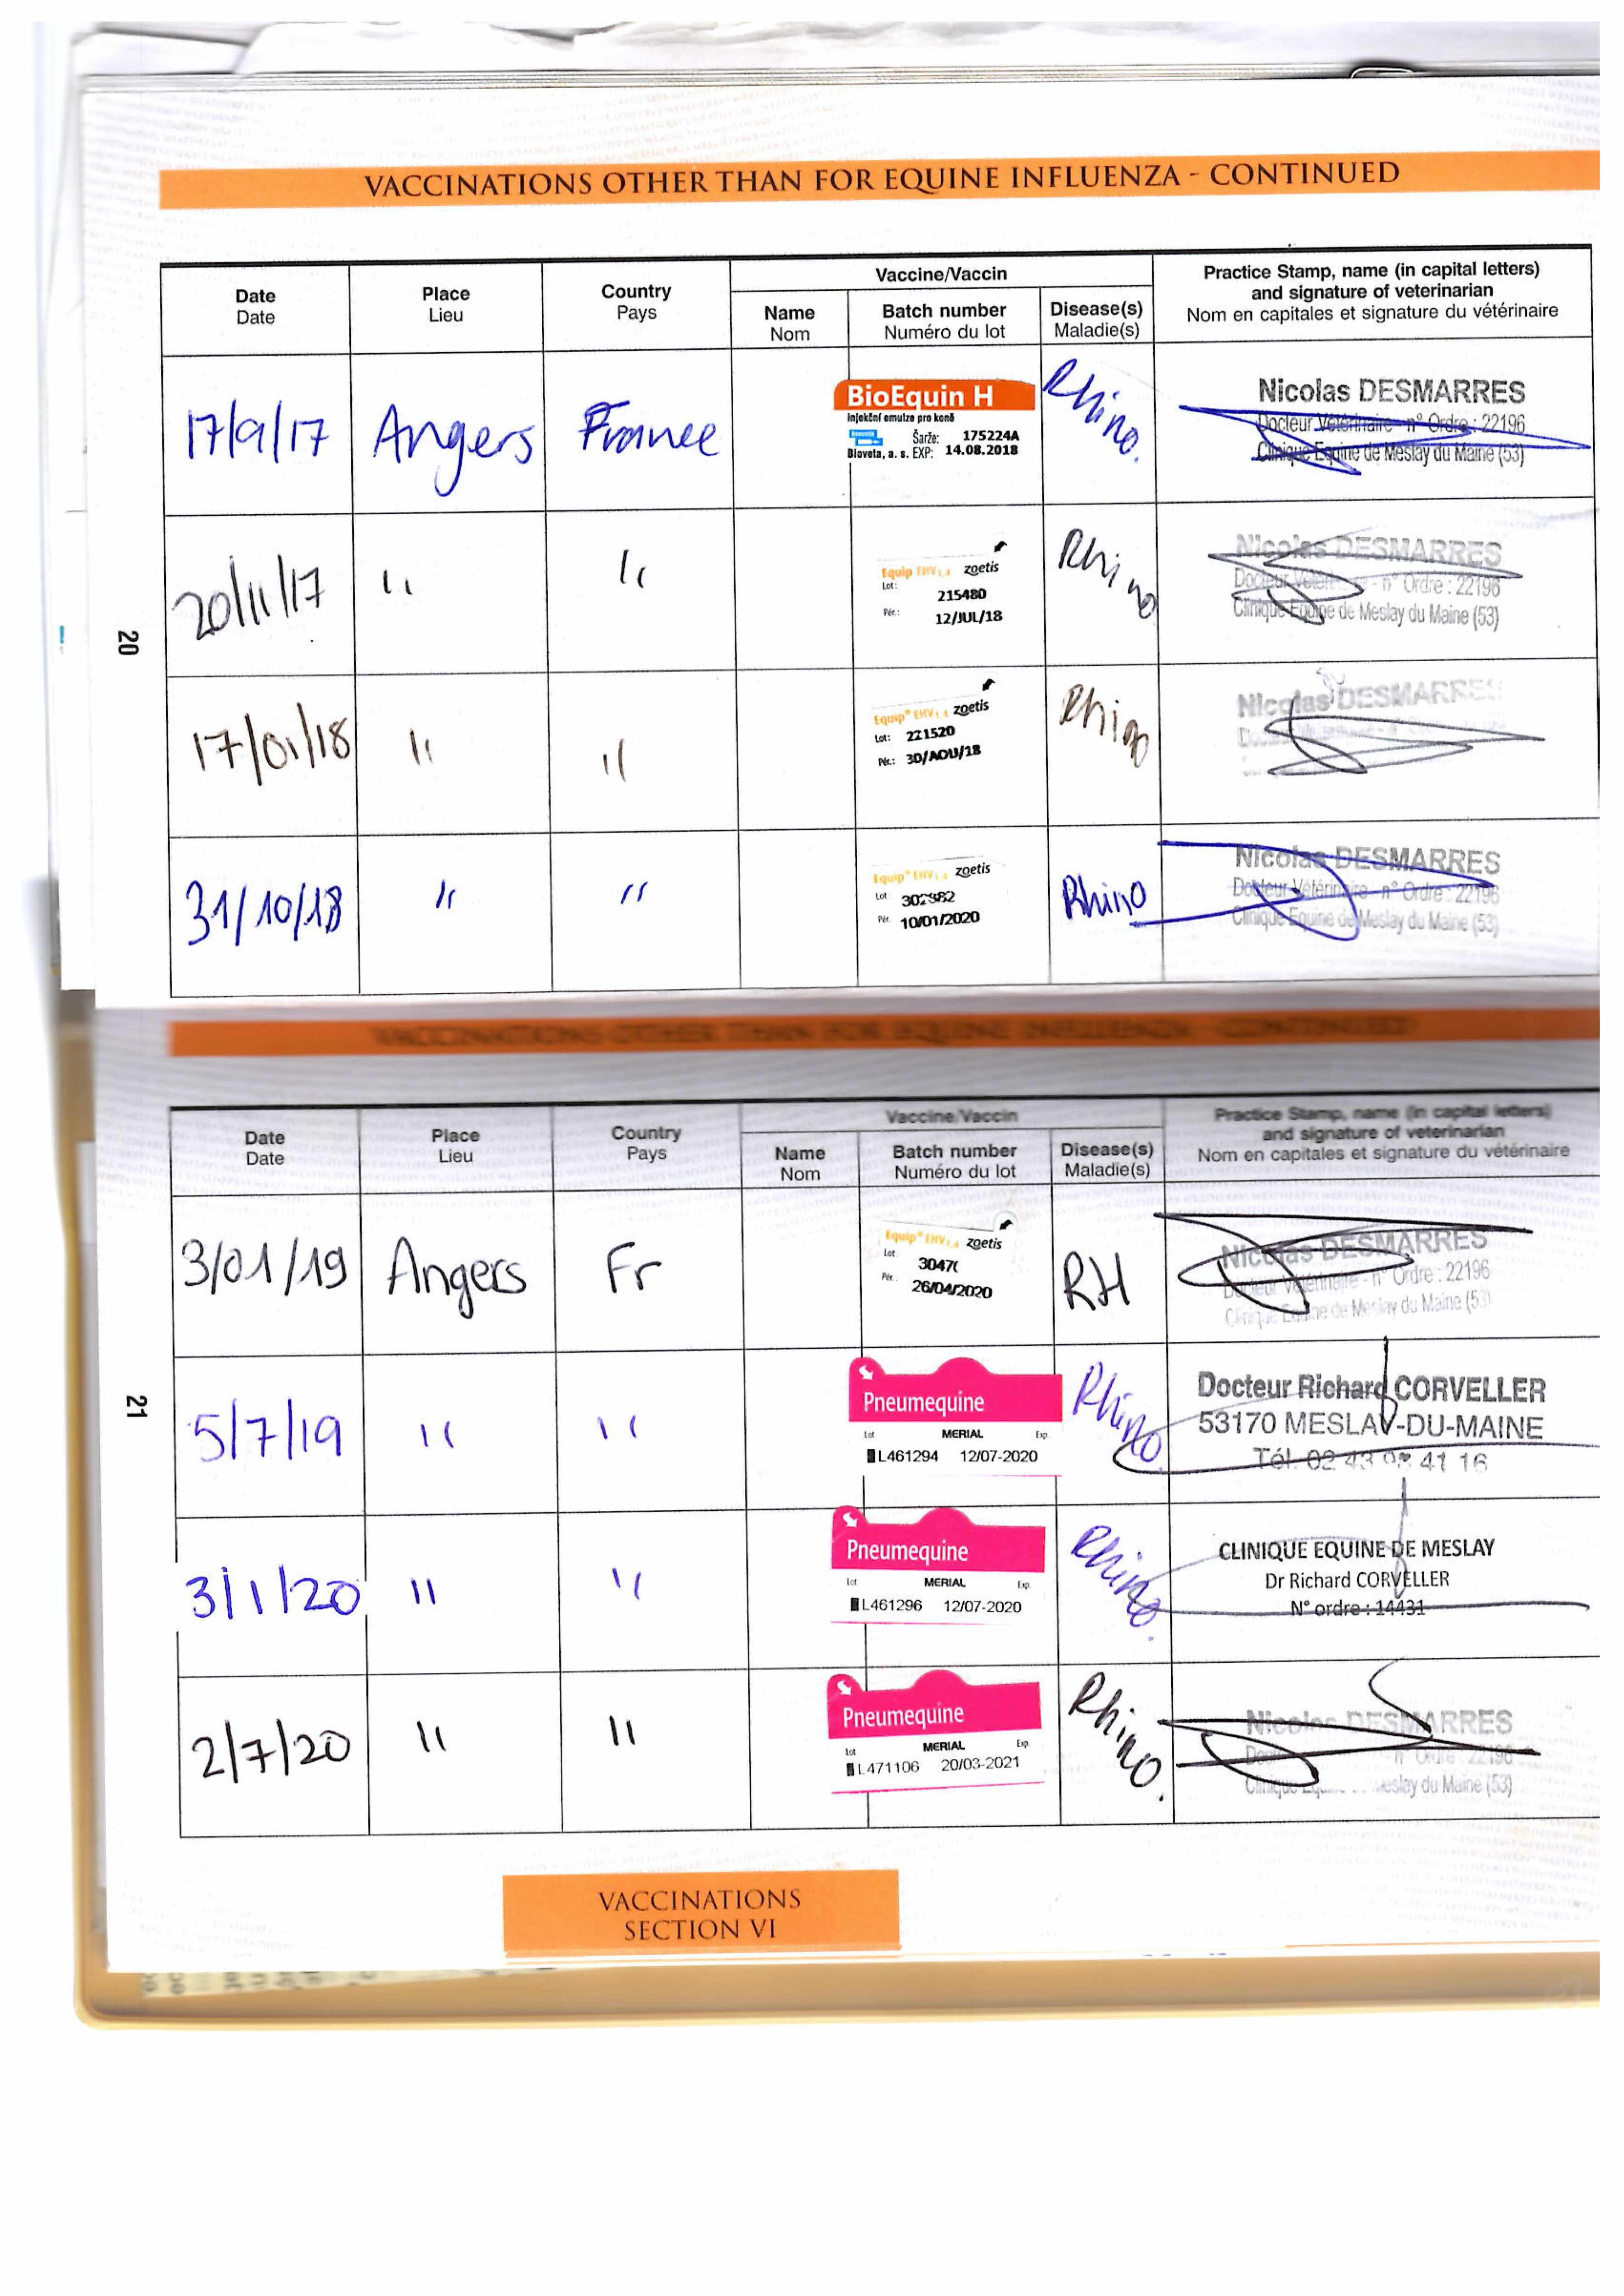 VACCINATIONS OTHER THAN FOR EQUINE INFLUENZA - CONTINUED
Date
Date
Place
Lieu
Country
Pays
Vaccine/Vaccin
Name
Nom
Batch number
Numéro du lot
Disease(s)
Maladie(s)
Practice Stamp, name (in capital letters)
and signature of veterinarian
Nom en capitales et signature du vétérinaire
17/9/17 Angers France
BioEquin H
Injekční emulze pro koně
Šarže: 175224A
Bioveta, a. s. EXP: 14.08.2018
Rhino.
Nicolas DESMARRES
Docteur Vétérinaire - n° Ordre : 22196
Clinique Equine de Meslay du Maine (53)
20/11/17 " "
Equip EHV1,4 zoetis
Lot:
215480
Pér.:
12/JUL/18
Rhino
Nicolas DESMARRES
Docteur Vétérinaire - n° Ordre : 22196
Clinique Equine de Meslay du Maine (53)
20
17/01/18 " "
Equip® EHV1,4 zoetis
Lot: 221520
Pér.: 30/AOU/18
Rhino
Nicolas DESMARRES
31/10/18 " "
Equip® EHV1,4 zoetis
Lot
Pér. 10/01/2020
Rhino
Nicolas DESMARRES
Docteur Vétérinaire - n° Ordre : 22196
Clinique Equine de Meslay du Maine (53)
VACCINATIONS OTHER THAN FOR EQUINE INFLUENZA - CONTINUED
Date
Date
Place
Lieu
Country
Pays
Vaccine/Vaccin
Name
Nom
Batch number
Numéro du lot
Disease(s)
Maladie(s)
Practice Stamp, name (in capital letters)
and signature of veterinarian
Nom en capitales et signature du vétérinaire
3/01/19 Angers Fr
Equip® EHV1,4 zoetis
Lot
Pér.
26/04/2020
RH
Nicolas DESMARRES
Docteur Vétérinaire - n° Ordre : 22196
Clinique Equine de Meslay du Maine (53)
21
5/7/19 " "
Pneumequine
Lot MERIAL Exp.
L461294 12/07-2020
Rhino.
Docteur Richard CORVELLER
53170 MESLAY-DU-MAINE
Tél. 02 43 98 41 16
3/1/20 " "
Pneumequine
Lot MERIAL Exp.
L461296 12/07-2020
Rhino.
CLINIQUE EQUINE DE MESLAY
Dr Richard CORVELLER
N° ordre : 14431
2/7/20 " "
Pneumequine
Lot MERIAL Exp.
L471106 20/03-2021
Rhino.
Nicolas DESMARRES
n° Ordre : 22196
Clinique Meslay du Maine (53)
VACCINATIONS
SECTION VI